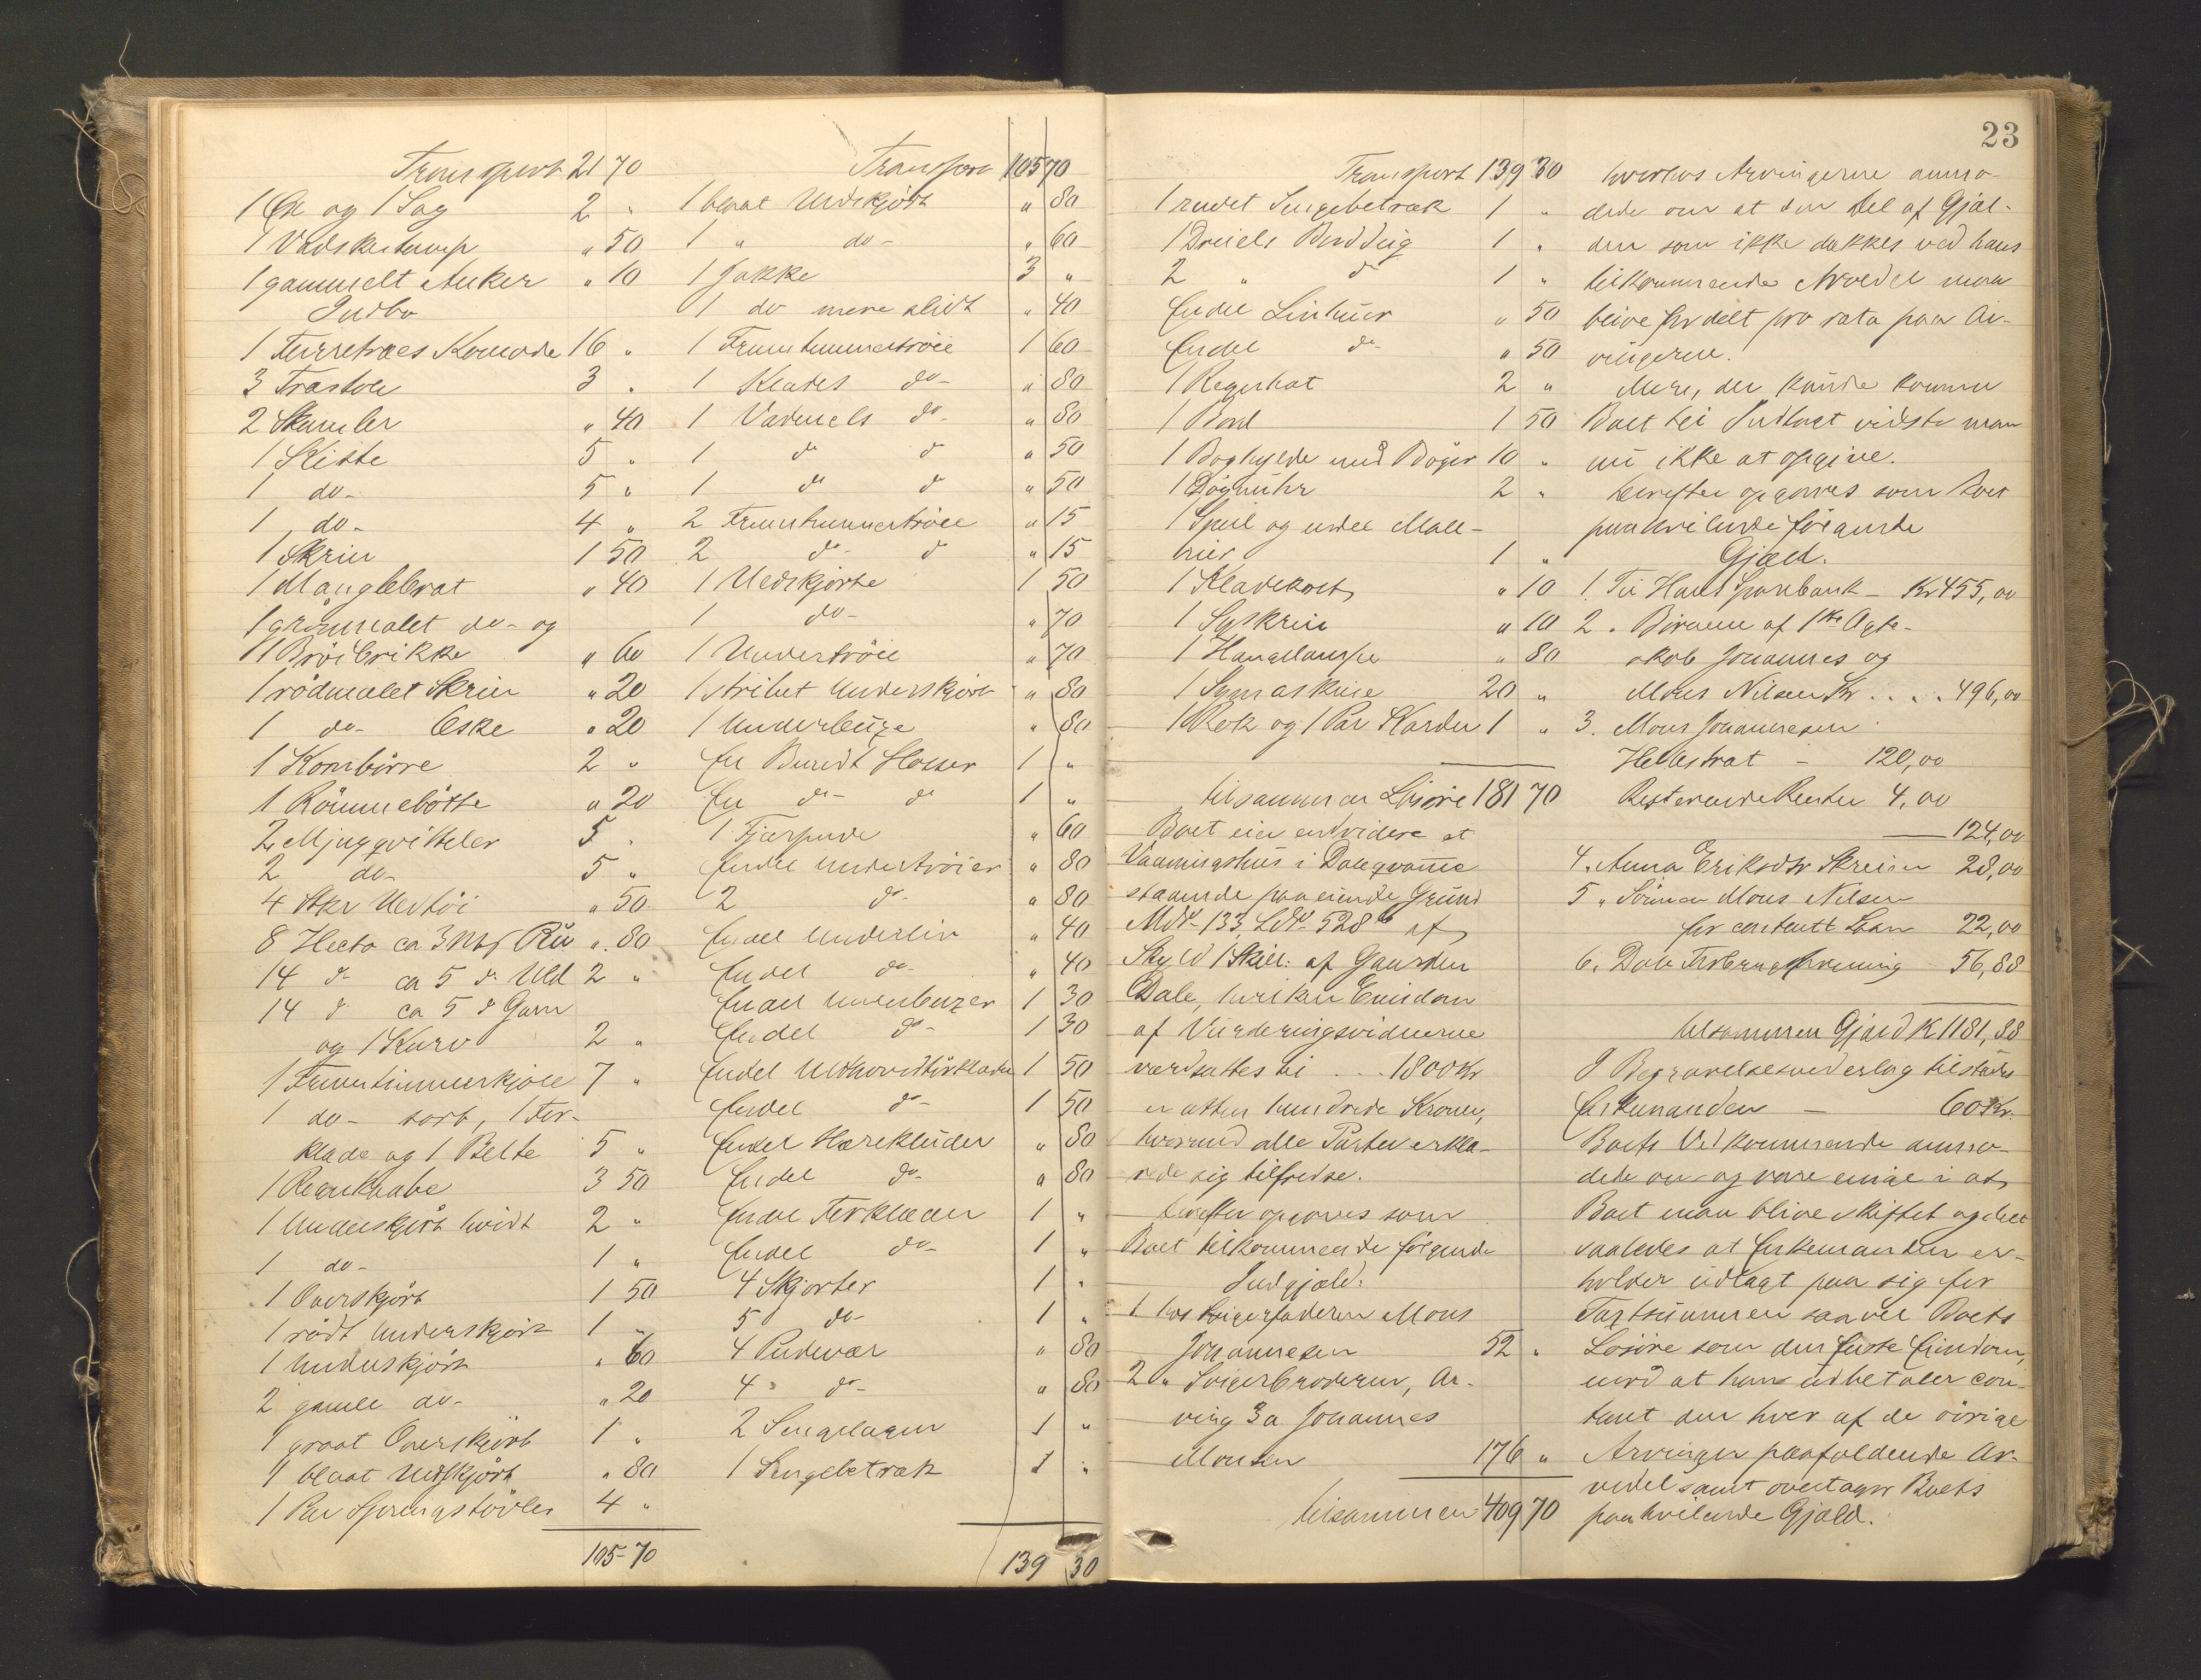 Transport 21 70
1 Øx og 1 Sag 2 "
1 Vadskestamp " 50
1 gammelt Anker " 10
Indbo
1 Furretræes Komode 16 "
3 Træstole 3 "
2 Skamler " 40
1 Kiste 5 "
1 do- 5 "
1 do- 4 "
1 Skrin 1 50
1 Manglebræt " 40
1 grønmalet do- og
1 Brødbrikke " 60
1 rødmalet Skrin " 20
1 do- Eske " 20
1 Kornbørre 2 "
1 Rømmebøtte " 20
2 Mjugqvitteler 5 "
2 do- 5 "
4 Stkr Uldtøi " 50
8 Hecto ca 3 Mk Ru " 80
14 do ca 5 do Uld 2 "
14 do ca 5 do Garn
og 1 Kurv 2 "
1 Fruentimmerkjole 7 "
1 do- sort, 1 For-
klæde og 1 Belte 5 "
1 Regnkaabe 3 50
1 Underskjørt hvidt 2 "
1 do- 1 "
1 Overskjørt 1 50
1 rødt Underskjørt 1 "
1 Underskjørt " 60
2 gamle do- " 20
1 graat Overskjørt 1 "
1 blaat Uldskjørt " 80
1 Par Springstøvler 4 "
105-70
Transport 105 70
1 blaat Uldskjørt " 80
1 " do- " 60
1 Jakke 3 "
1 do mere slidt " 40
1 Fruentimmertrøie 1 60
1 Klædes do- " 80
1 Vadmels do- " 80
1 do do " 50
1 do do " 50
2 Fruentimmertrøie " 15
2 do- do " 15
1 Uldskjorte 1 50
1 do- " 70
1 Undertrøie " 70
1 stribet Underskjørt " 80
1 Underbuxe " 80
En Bundt Hoser 1 "
En do- do 1 "
1 Fjærpude " 60
Endel Undertrøier " 80
2 do- " 80
Endel Underliv " 40
Endel do- " 40
Endel Underbuxer 1 30
Endel do- 1 30
Endel Uldhovedtørklæder 1 50
Endel do- 1 50
Endel Hærekluder " 80
Endel do- " 80
Endel Forklæder 1 "
Endel do- 1 "
4 Skjorter 1 "
5 do- 1 "
4 Pudevær " 80
4 do- " 80
2 Sengelagen 1 "
1 Sengebetræk 1 "
139 30
23
Transport 139 30
1 rudet Sengebetræk 1 "
1 Dreiels Borddug 1 "
2 " do 1 "
Endel Linhuer " 50
Endel do- " 50
1 Regnhat 2 "
1 Bord 1 50
1 Boghylde med Bøger 10 "
1 Døgnuhr 2 "
1 Speil og endel Male-
rier 1 "
1 Klædekost " 10
1 Syskrin " 10
1 Hanglampe " 80
1 Symaskine 20 "
1 Rok og 1 Par Karder 1 "
tilsammen Løsøre 181 70
Boet eier endvidere et
Vaaningshus i Daleqvame
staaende paa eiende Grund
M. No 133, L. No 528b af
Skyld 1 Skill. af Gaarden
Dale, hvilken Eiendom
af Vurderingsvidnerne
værdsattes til ... 1800 Kr
er atten hundrede Kroner,
hvormed alle Parter erklæ-
rede sig tilfredse.
Derefter opgaves som
Boet tilkommende følgende
Indgjæld:
1 hos Svigerfaderen Mons
Johannesen 52 "
2 " Svigerbroderen, Ar-
ving 3a Johannes
Monsen 176 "
tilsammen 409 70
hvorhos Arvingerne anmo-
dede om at den Del af Gjæl-
den som ikke dækkes ved hans
tilkommende Arvedel maa
blive fordelt pro rata paa Ar-
vingerne.
Mere, der kunde komme
Boet til Indtægt vidste man
nu ikke at opgive.
Derefter opgaves som Boet
paahvilende følgende
Gjæld.
1. Til Haus Sparebank - Kr 455,00
2 " Børnene af 1ste Ægte-
skab Johannes og
Mons Nilsen Kr . . . . 496,00
3. Mons Johannesen
Hellestrat - 120,00
Resterende Renter 4,00
124,00
4. Anna Eriksdtr Skreien 28,00
5 " Sønnen Mons Nilsen
for contant Laan 22,00
6. Dale Forbrugsforening 56,88
tilsammen Gjæld K 1181,88
I Begravelsesvederlag tilstaaes
Enkemanden - 60 Kr.
Boets Vedkommende anmo-
dede om og vare enige i at
Boet maa blive skiftet og delt
saaledes at Enkemanden er-
holder udlagt paa sig for
Taxtsummen saavel Boets
Løsøre som den faste Eiendom,
mod at han udbetaler con-
tant den hver af de øvrige
Arvinger paafaldende Ar-
vedel samt overtager Boets
paahvilende Gjæld.